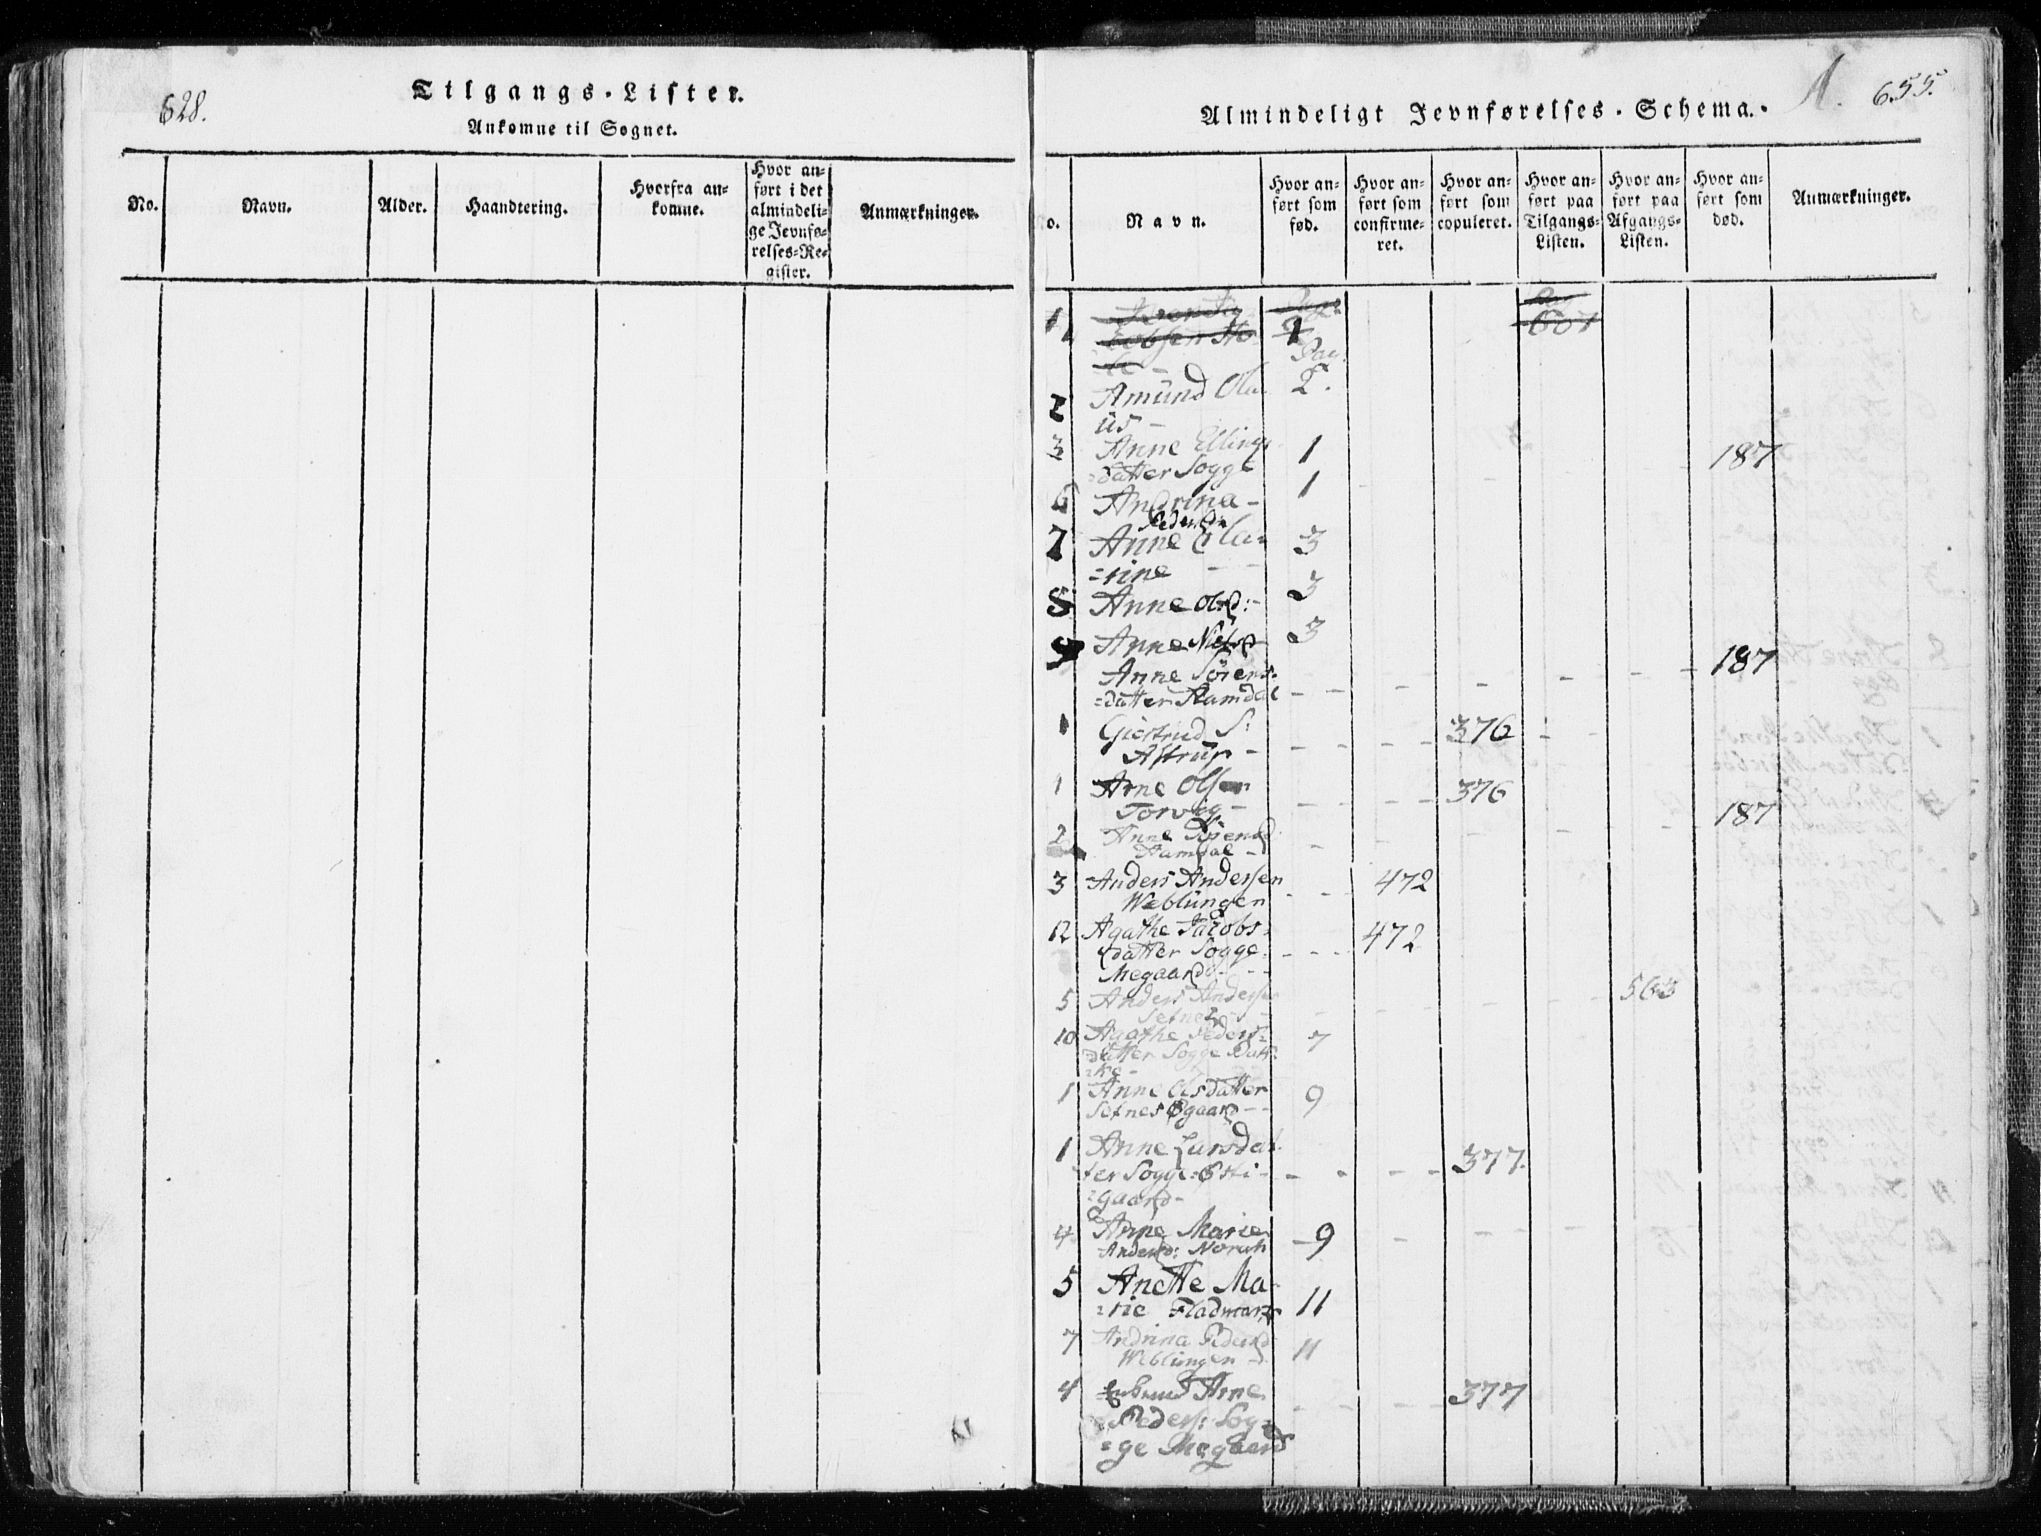 628.
Tilgangs-Lister.
Ankomne til Sognet.
No.
Navn.
Alder.
Haandtering.
Hvorfra an=
komne.
Hvor an=
ført i det
almindeli=
ge Jevnfø=
relses=Re=
gister.
Anmærkninger.
A. 655.
Almindeligt Jevnførelses-Schema.
No.
Navn.
Hvor an=
ført som
fød.
Hvor an=
ført som
confirme=
ret.
Hvor an=
ført som
copuleret.
Hvor an=
ført paa
Tilgangs=
Listen.
Hvor an=
ført paa
Afgangs=
Listen.
Hvor an=
ført som
død.
Anmærkninger.
1
1 607
Pag.
2 Amund Ola 2.
us -
3 Anne Ellings 1 187
=datter Sogge
6 Andrina - 1
Pedersd:
7 Anne Cha= 3
=rine - -
8 Anne Olsd:- 3
9 Anne Nielsd 3
Anne Sörens= 187
=datter Hamdal
1 Giertrud S: 376
Astrup -
1 Arne Olsen 376
Torvig -
2 Anne Sörensd: 187
Hamdal -
3 Anders Andersen 472
Weblungen
12 Agathe Jacobs= 472
datter Sogge
Megaard - -
5 Anders Andersen 563
Setnes -
10 Agathe Peders= 7
datter Sogge Bak=
=ke -
1 Anne Olsdatter 9
Setnes Øgaard - -
1 Anne Larsdat 377.
ter Sogge Østi-
=gaard -
4 Anne Marie 9
Andersd: Norah
5 Anette Ma- 11
=rie Fladmark
7 Andrina Pedersd 11
Weblungen -
4 Enkemd Arne 377
Peders: Sog=
=ge Megaard